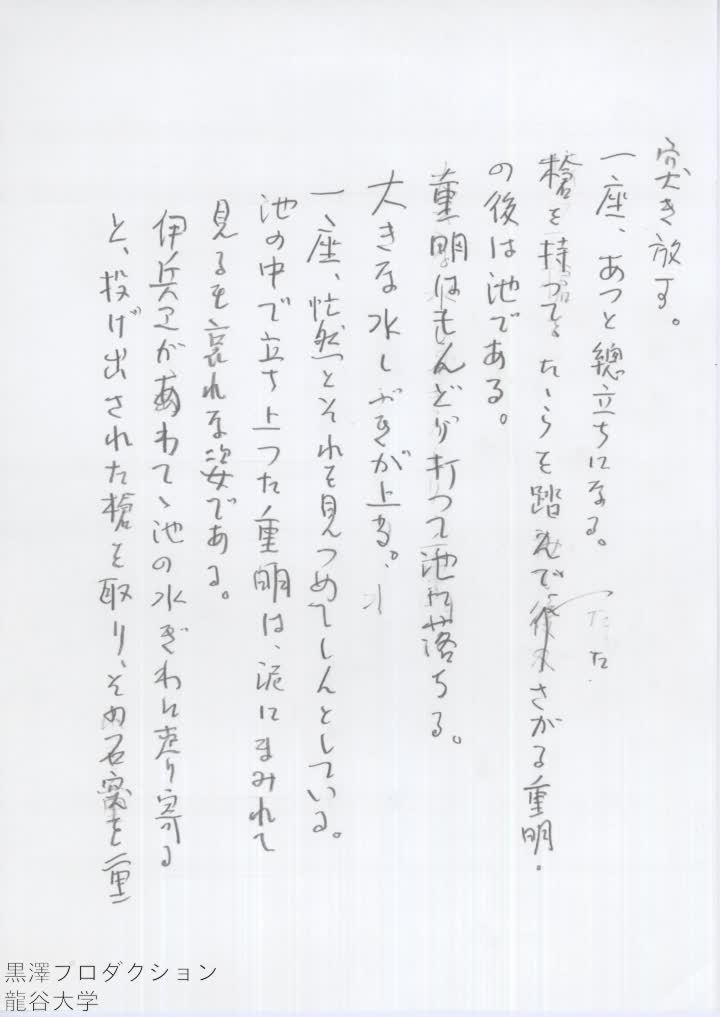 突き放す。
一座、あつと總立ちになる。
槍を持つて、たゝらを踏んで、後へさがる重明。
たた
の後は池である。
重明はもんどり打つて池に落ちる。
大きな水しぶきが上る。
一座、忙然とそれを見つめてしんとしている。
池の中で立ち上つた重明は、泥にまみれて
見るも哀れな姿である。
伊兵卫があわてゝ池の水ぎわに走り寄る
と、投げ出された槍を取り、その石突を重
黒澤プロダクション
龍谷大学